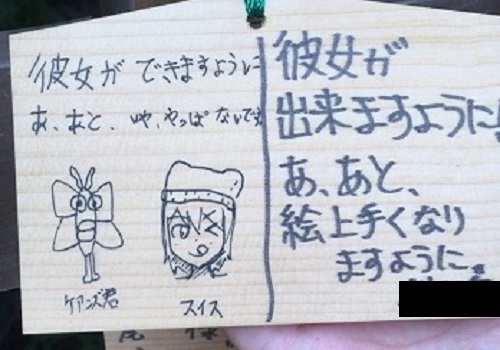 彼女が できますように
あ、あと、いや、やっぱ ないです
ANZ
ケアンズ君
スイス
彼女が
出来ますように!
あ、あと、
絵上手くなり
ますように。